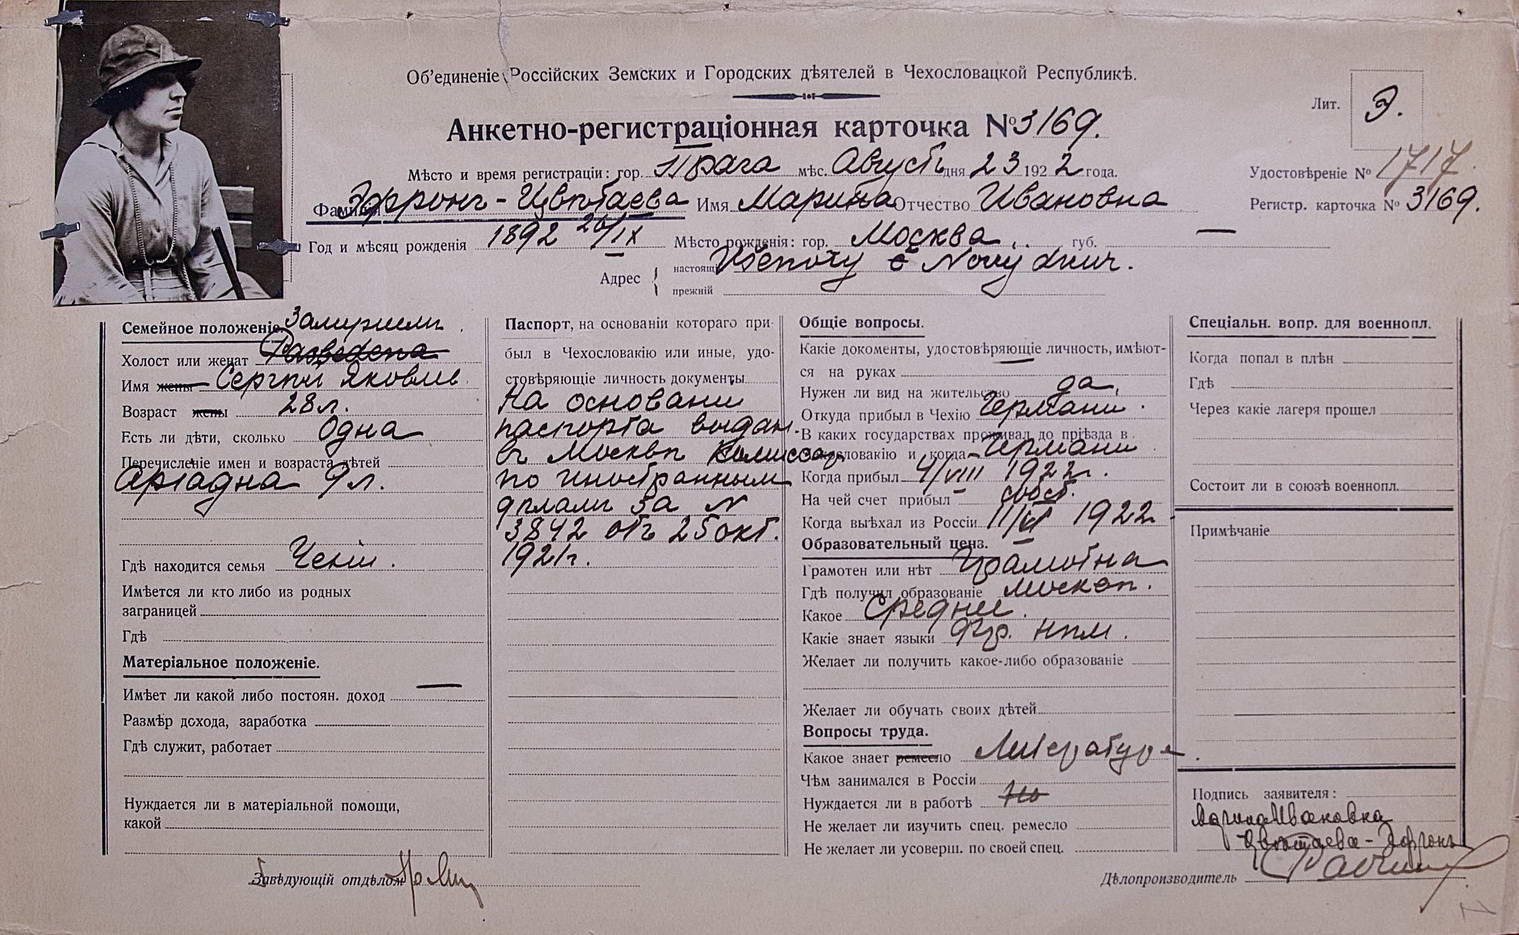 Об'единеніе Россійскихъ Земскихъ и Городскихъ дѣятелей в Чехословацкой Республикѣ.
Лит. Э.
Анкетно-регистраціонная карточка № 3169.
Мѣсто и время регистраціи: гор. Прага мѣс. Августъ дня 23 1922 года.
Удостовѣреніе № 1717.
Фамилія Эфронъ-Цвѣтаева Имя Марина Отчество Ивановна
Регистр. карточка № 3169.
Год и мѣсяц рожденія 1892 26/IX Мѣсто рожденія: гор. Москва губ. —
Адрес настоящ. Všenory č Nový
прежній
Семейное положеніе Замужемъ
Холост или женат Разведена
Имя жены Сергѣй Яковлев
Возраст жены 28 л.
Есть ли дѣти, сколько Одна
Перечисленіе имен и возраста дѣтей
Аріадна 9 л.
Гдѣ находится семья Чехіи.
Имѣется ли кто либо из родных
заграницей
Гдѣ
Матеріальное положеніе.
Имѣет ли какой либо постоян. доход —
Размѣр дохода, заработка
Гдѣ служит, работает
Нуждается ли в матеріальной помощи,
какой
Паспорт, на основаніи котораго при-
был в Чехословакію или иные, удо-
стовѣряющіе личность документы
На основаніи
паспорта выдан.
въ Москвѣ Комиссар.
по иностраннымъ
дѣламъ за N
3842 отъ 25 окт.
1921 г.
Общіе вопросы.
Какіе документы, удостовѣряющіе личность, имѣют-
ся на руках —
Нужен ли вид на жительство да.
Откуда прибыл в Чехію Германіи.
В каких государствах проживал до пріѣзда в
Чехословакію и когда Германіи
Когда прибыл 4/VIII 1922 г.
На чей счет прибыл собст.
Когда выѣхал из Россіи 11/VI 1922
Образовательный ценз.
Грамотен или нѣт Грамотна
Гдѣ получил образованіе Москвѣ.
Какое Среднее.
Какіе знает языки Фр. Нѣм.
Желает ли получить какое-либо образованіе
Желает ли обучать своих дѣтей
Вопросы труда.
Какое знает ремесло Литература.
Чѣм занимался в Россіи
Нуждается ли в работѣ
Не желает ли изучить спец. ремесло
Не желает ли усоверш. по своей спец.
Спеціальн. вопр. для военнопл.
Когда попал в плѣн
Гдѣ
Через какіе лагеря прошел
Состоит ли в союзѣ военнопл.
Примѣчаніе
Подпись заявителя:
Марина Ивановна
Цвѣтаева-Эфронъ
Завѣдующій отдѣлом
Дѣлопроизводитель